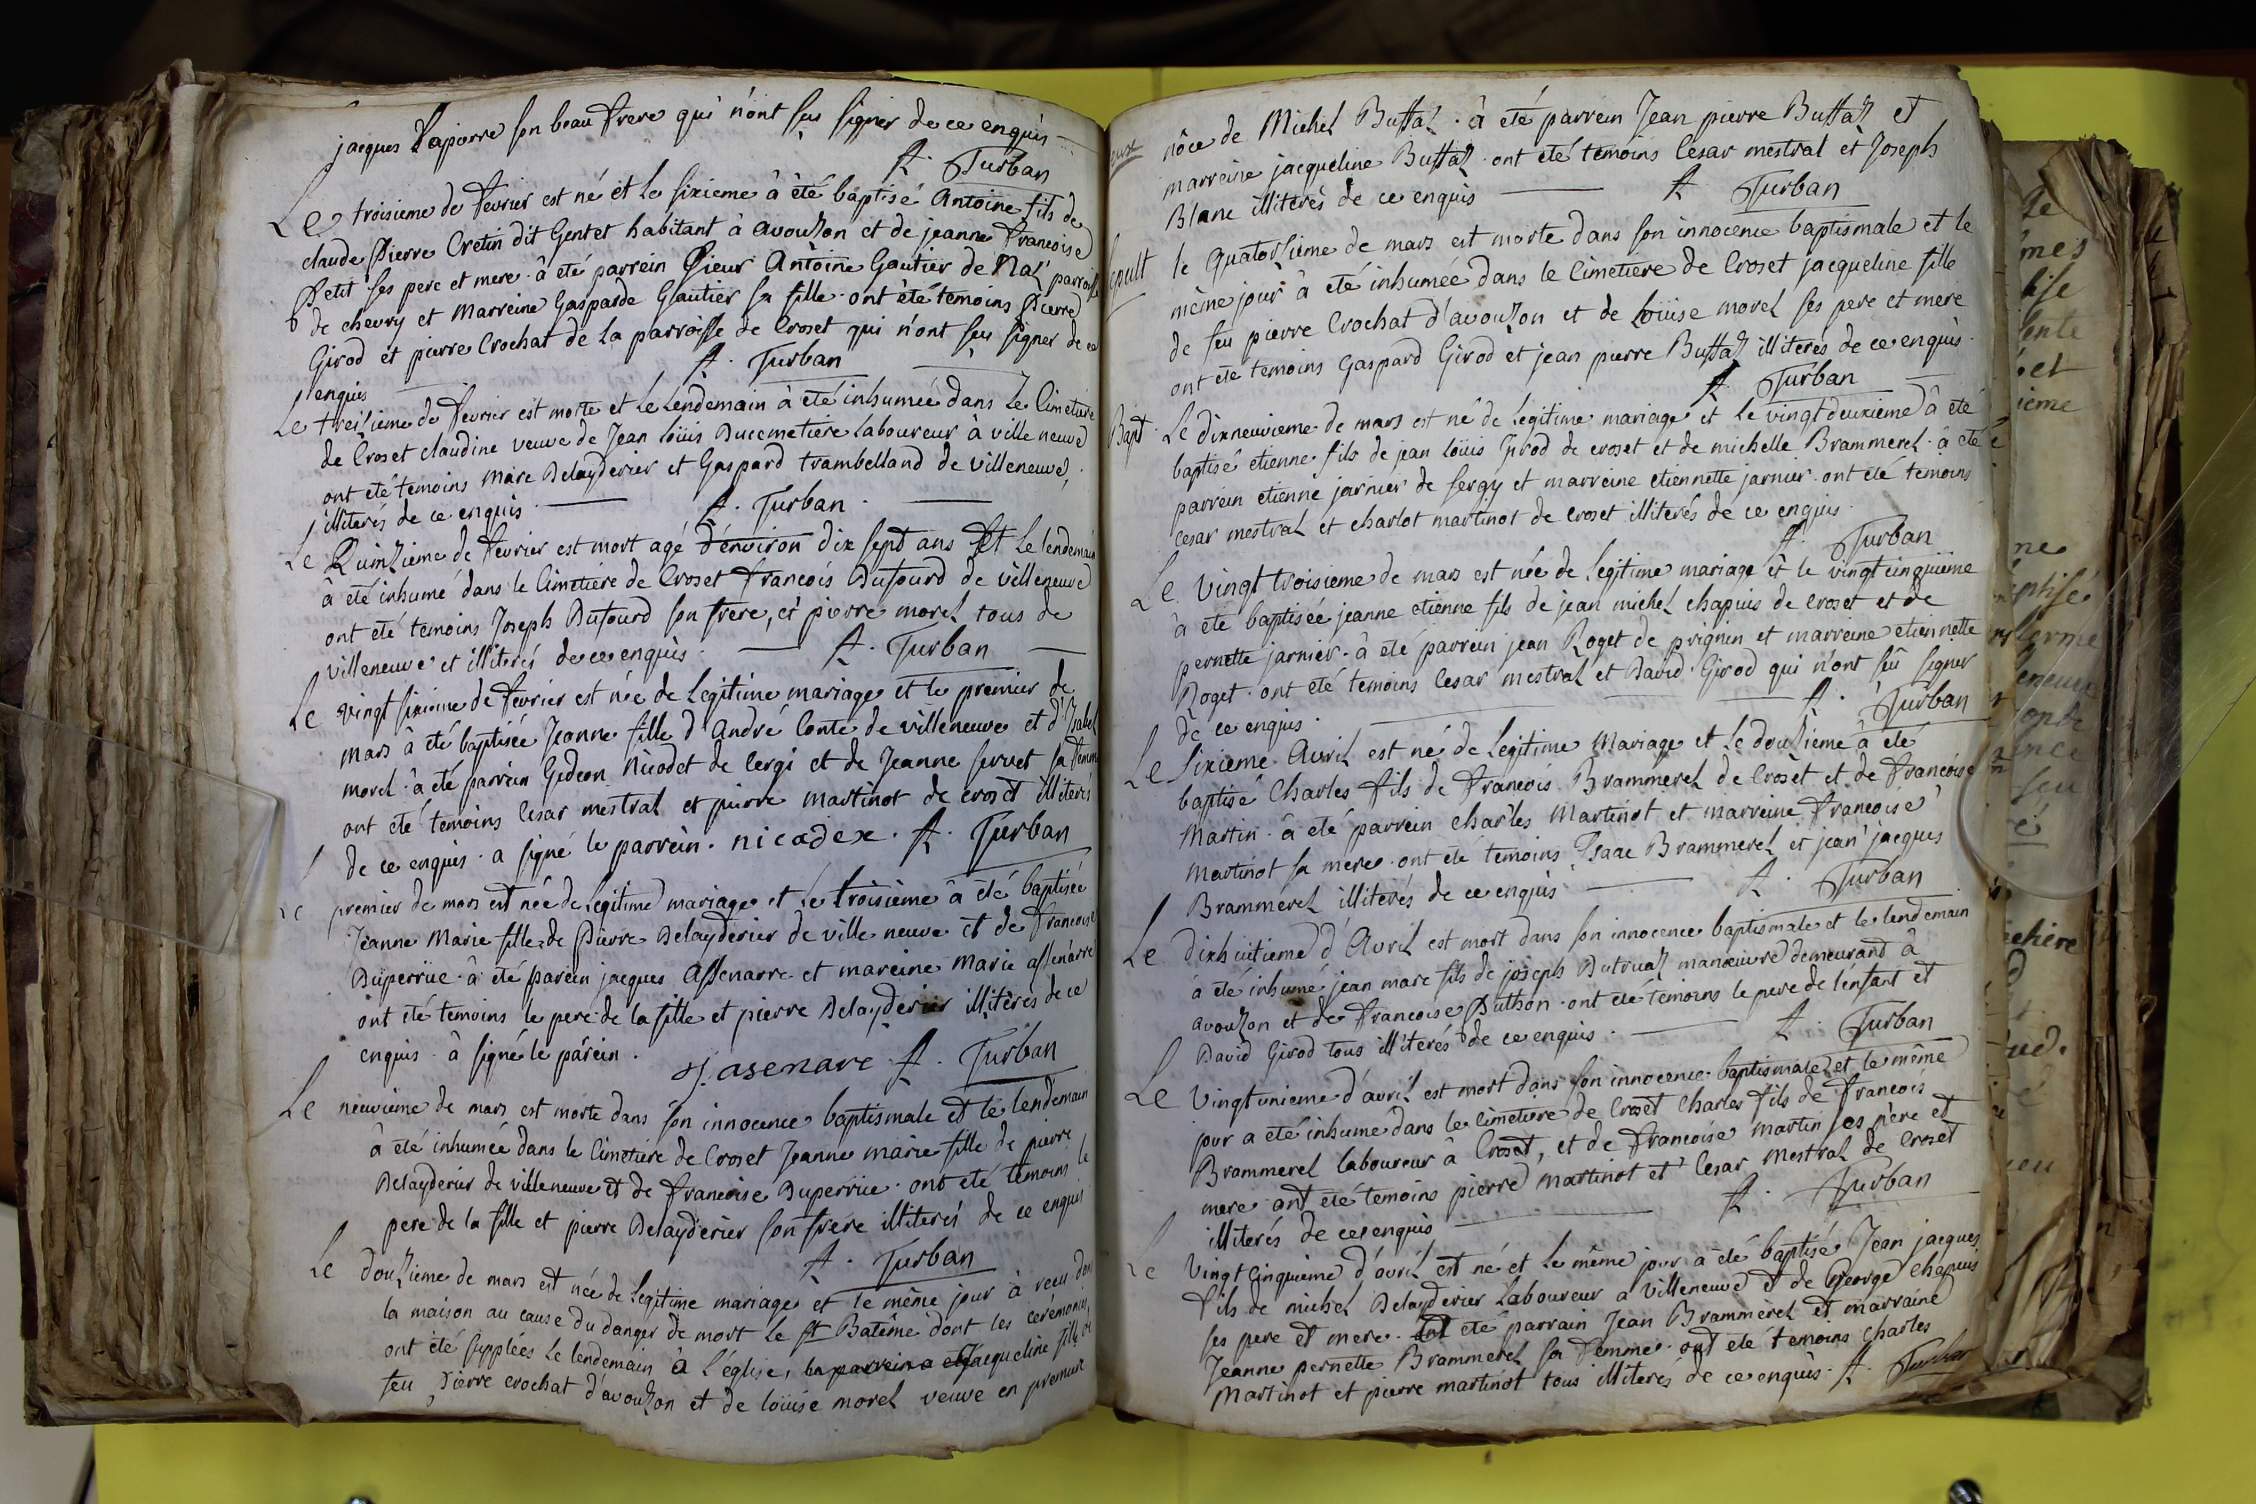 jacques Lapierre son beau frere qui n'ont sus signer de ce enquis
A. Turban
Le troisieme de fevrier est né et le sixieme à été baptisé Antoine fils de
claude Pierre Cretin dit Gentet habitant à avouzon et de jeanne francoise
Petit ses pere et mere. à été parrein Sieur Antoine Gautier de Naz parroisse
de chevry et Marreine Gasparde Gautier sa fille. ont été temoins Pierre
Girod et pierre Crochat de la parroisse de Croset qui n'ont seu signer de ce
enquis
A. Turban
Le treisieme de fevrier est morte et le lendemain à été inhumée dans le Cimetiere
de Croset claudine veuve de Jean loüis Ducemetiere laboureur à ville neuve
ont été temoins Marc Delayderier et Gaspard trambelland de villeneuve,
illiterés de ce enquis A. Turban.
Le Quinzieme de fevrier est mort agé d'environ dix sept ans et le lendemain
à été inhumé dans le Cimetiere de Croset francois Dufourd de villeneuve
ont été temoins Joseph Dufourd son frere, et pierre morel tous de
villeneuve et illiterés de ce enquis. A. Turban
Le vingt sixieme de fevrier est née de legitime mariage et le premier de
mars à été baptisée Jeanne fille d'André Conte de villeneuve et d'Isabel
morel. à été parrein Gedeon Nicodet de Cergi et de Jeanne servet sa femme
ont été temoins Cesar mestral et pierre martinot de croset illiterés
de ce enquis. a signé le parrein. nicadex. A. Turban
Le premier de mars est née de legitime mariage et le troisieme à été baptisée
Jeanne Marie fille de Pierre Delayderier de ville neuve et de francoise
Duperrüe. à été parein jacques Assenarre et mareine Marie assenarre
ont été temoins le pere de la fille et pierre Delayderier illiterés de ce
enquis. à signé le parein. J. asenare. A. Turban
Le neuvieme de mars est morte dans son innocence baptismale et le lendemain
à été inhumée dans le Cimetiere de Croset Jeanne marie fille de pierre
Delayderier de villeneuve et de francoise Duperrüe. ont été temoins le
pere de la fille et pierre Delayderier son frere illiterés de ce enquis
A. Turban
Le douzieme de mars est née de legitime mariage et le même jour à recu dans
la maison au cause du danger de mort le st Batême dont les ceremonies
ont été supplées le lendemain à l'église, le parrein a et Jacqueline fille de
feu Pierre crochat d'avouzon et de loüise morel veuve en premiere
nôce de Michel Buffaz. à été parrein Jean pierre Buffaz et
marreine jacqueline Buffaz. ont été temoins Cesar mestral et Joseph
Blanc illiterés de ce enquis A. Turban
Sepult le Quatorzieme de mars est morte dans son innocence baptismale et le
même jour à été inhumée dans le Cimetiere de Croset jacqueline fille
de feu pierre Crochat d'avouzon et de loüise morel ses pere et mere
ont été temoins Gaspard Girod et jean pierre Buffaz illiterés de ce enquis.
A. Turban
Bapt. Le dixneuvieme de mars est né de legitime mariage et le vingtdeuxieme à été
baptisé etienne fils de jean loüis Girod de croset et de michelle Brammerel. à été
parrein etienne jarnier de sergy et marreine etiennette jarnier. ont été temoins
cesar mestral et charlot martinot de croset illiterés de ce enquis.
A. Turban
Le vingt troisieme de mars est née de legitime mariage et le vingtcinquieme
à été baptisée jeanne etienne fils de jean michel chapuis de Croset et de
pernette jarnier. à été parrein jean Roget de prignin et marreine etiennette
Roget. ont été temoins Cesar mestral et David Girod qui n'ont sû signer
de ce enquis. A. Turban
Le Sixieme Avril est né de legitime Mariage et le douzieme à été
baptisé Charles fils de francois Brammerel de Croset et de francoise
Martin. à été parrein charles Martinot et marreine francoise
Martinot sa mere. ont été temoins Isaac Brammerel et jean jacques
Brammerel illiterés de ce enquis A. Turban
Le dixhuitieme d'Avril est mort dans son innocence baptismale et le lendemain
à été inhumé jean marc fils de joseph Dutruaz manœuvre demeurand à
avouzon et de francoise Puthon. ont été temoins le pere de l'enfant et
David Girod tous illiterés de ce enquis. A. Turban
Le Vingtunieme d'avril est mort dans son innocence baptismale et le même
jour a été inhumé dans le cimetiere de Croset Charles fils de francois
Brammerel laboureur à Croset, et de francoise martin ses père et
mere ont été temoins pierre martinot et Cesar Mestral de Croset
illiterés de ce enquis A. Turban
Le Vingtcinquieme d'avril est né et le même jour a été baptisé Jean jacques
fils de michel Delayderier Laboureur a villeneuve et de George chapuis
ses pere et mere. ont été parrain Jean Brammerel et marraine
Jeanne pernette Brammerel sa femme. ont été temoins charles
Martinot et pierre martinot tous illiterés de ce enquis. A. Turban